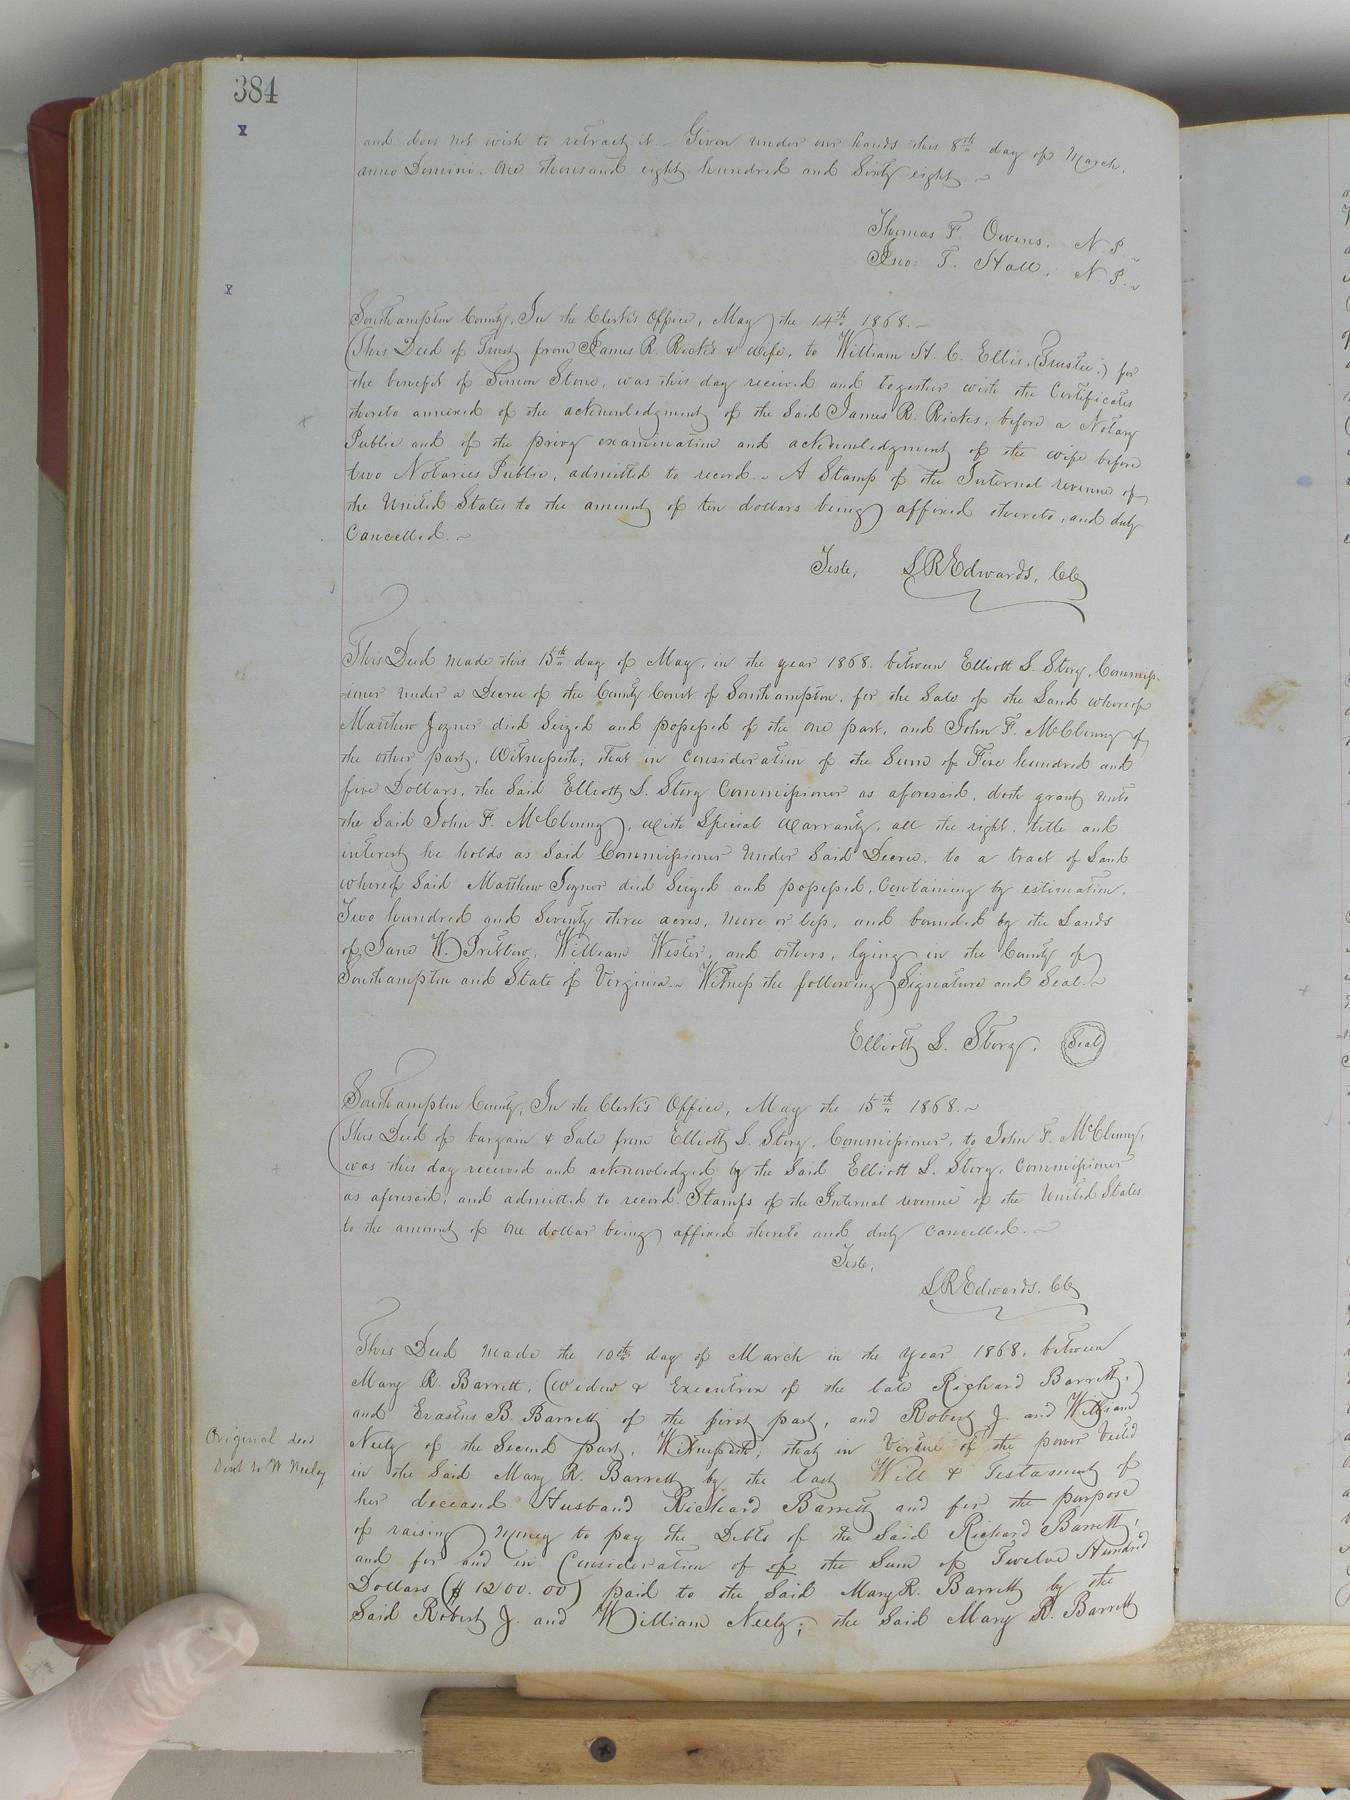 384
x
and does not wish to retract it. Given under our hands this 8th day of March,
anno Domini. One thousand eight hundred and Sixty eight. ~
Thomas F. Owens, N P. ~
Jno: T. Hall, N P. ~
x
Southampton County, In the Clerk's Office, May the 14th 1868. ~
This Deed of Trust from James R. Ricks & wife, to William H. C. Ellis, (Trustee,) for
the benefit of Simon Stone, was this day received and together with the Certificates
thereto annexed of the acknowledgment of the Said James R. Ricks, before a Notary
Public and of the privy examination and acknowledgment of the wife before
two Notaries Public, admitted to record. ~ A Stamp of the Internal revenue of
the United States to the amount of ten dollars being affixed thereto, and duly
Cancelled. ~
Teste, L R Edwards, Clk
This Deed made this 15th day of May, in the year 1868. between Elliott L. Story, Commiss-
ioner under a Decree of the County Court of Southampton, for the Sale of the Land whereof
Matthew Joyner died Seized and possessed of the one part, and John F. McClenny of
the other part, Witnesseth; that in consideration of the Sum of Five hundred and
five Dollars, the Said Elliott L. Story Commissioner as aforesaid, doth grant unto
the Said John F. McClenny, with Special Warranty, all the right, title and
interest he holds as Said Commissioner under Said Decree, to a tract of Land
whereof Said Matthew Joyner died Seized and possessed, Containing by estimation,
Two hundred and Seventy three acres, more or less, and bounded by the Lands
of Jane W. Pretlow, William Wester, and others, lying in the County of
Southampton and State of Virginia. ~ Witness the following Signature and Seal. ~
Elliott L. Story. Seal
Southampton County, In the Clerk's Office, May the 15th 1868. ~
This Deed of bargain & Sale from Elliott L. Story, Commissioner, to John F. McClenny,
was this day received and acknowledged by the Said Elliott L. Story, Commissioner
as aforesaid, and admitted to record. Stamps of the Internal revenue of the United States
to the amount of one dollar being affixed thereto and duly cancelled. ~
Teste,
L R Edwards, Clk
This Deed made the 10th day of March in the year 1868, between
Mary R. Barrett, (widow & Executrix of the late Richard Barrett,)
and Erastus B. Barrett of the first part, and Robert J. and William
Neely of the Second part, Witnesseth; that in Virtue of the power Vested
Original deed
Sent to W Neeley
in the Said Mary R. Barrett by the last Will & Testament of
her deceased Husband Richard Barrett and for the purpose
of raising money to pay the Debts of the Said Richard Barrett,
and for and in Consideration of of the Sum of Twelve Hundred
Dollars ($ 1200.00) paid to the Said Mary R. Barrett by the
Said Robert J. and William Neely; the Said Mary R. Barrett